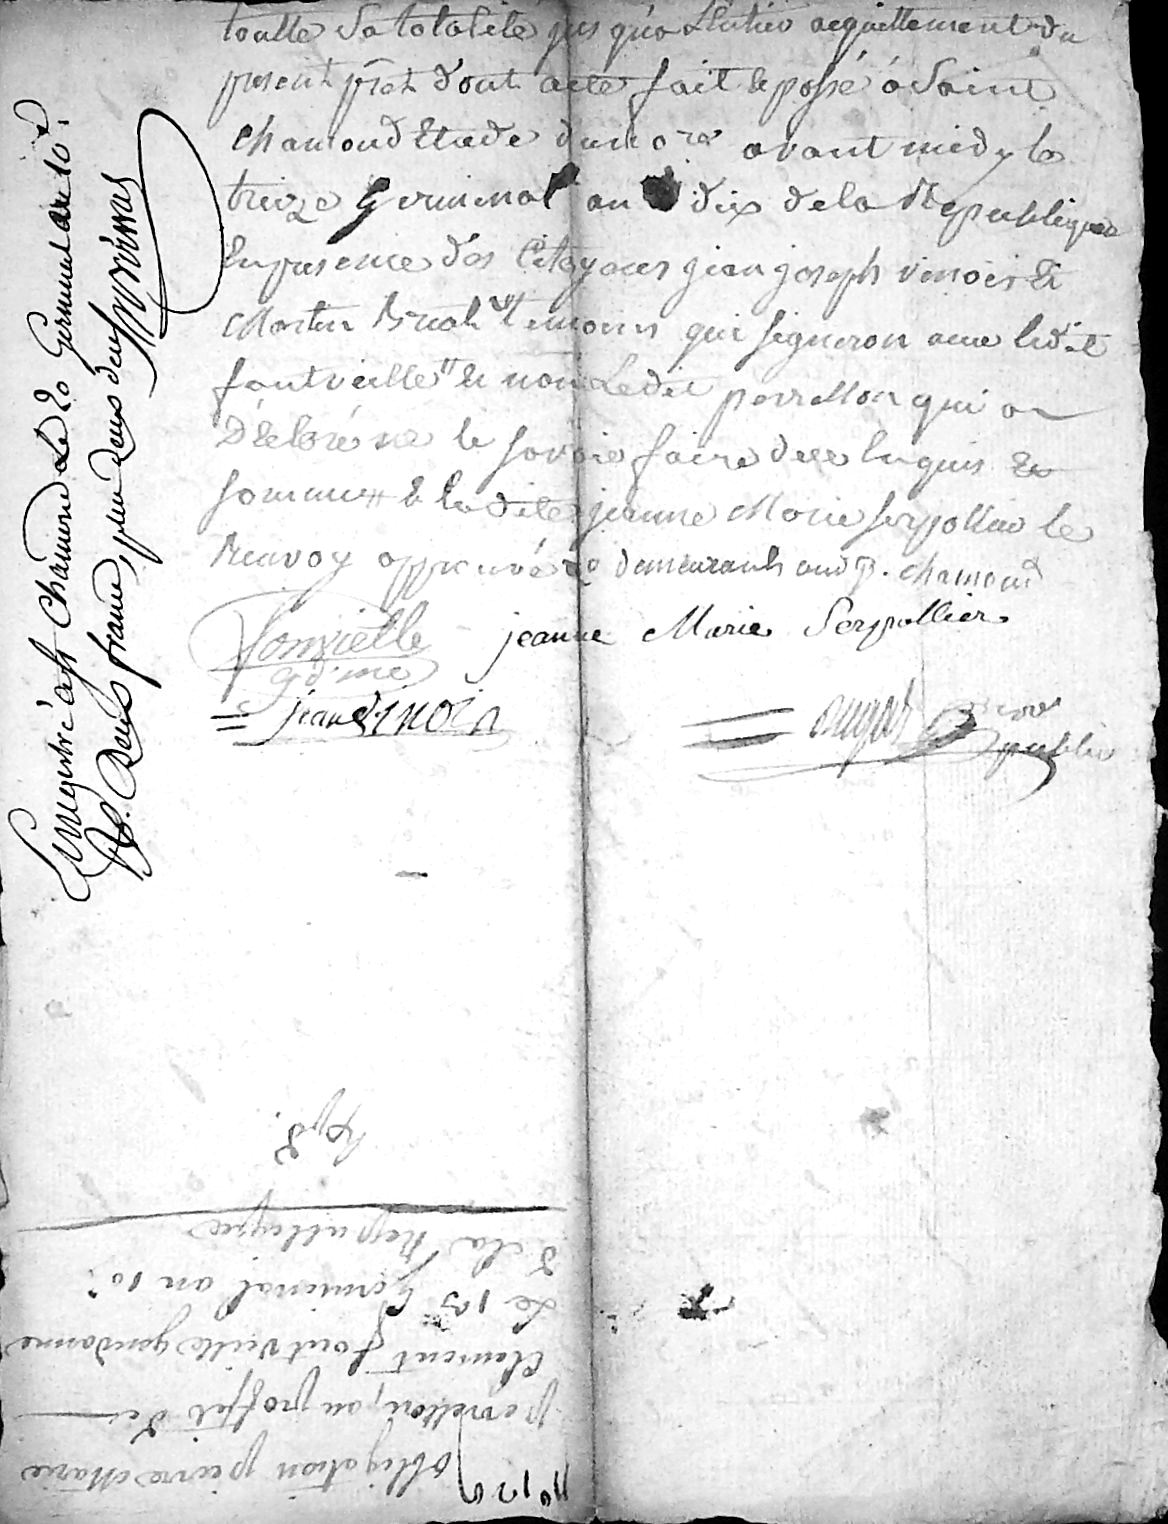 toutte Sa totalité jus qua Lentier acquittement du
present pret d'out acte fait & passé a Saint
chamond Etude du nore avant midy le
treize Germinal an dix dela Republique
En presence des Citoyens jean joseph vinois Et
Martin temoins qui signeron avec ledit
fontvielle & non Ledit perrellon qui a
Déclaré ne le savoir faire dece Enquis &
somme & laditte jeanne Marie serpollier le
Renvoy approuvé demeurants aud st. chamond
fonvielle
gd'me
jeanne Marie Serpollier
jean vinois
nore
public
Enregistré à st Chamond Le 20 Germinal an 10e.
R. Deux francs, plus deux deux
obligation pierre Marie
perrellon, au proffit de
Clement fontvielle gendarme
Le 13 Germinal an 10e.
de la Republique
Exp d.
no 125